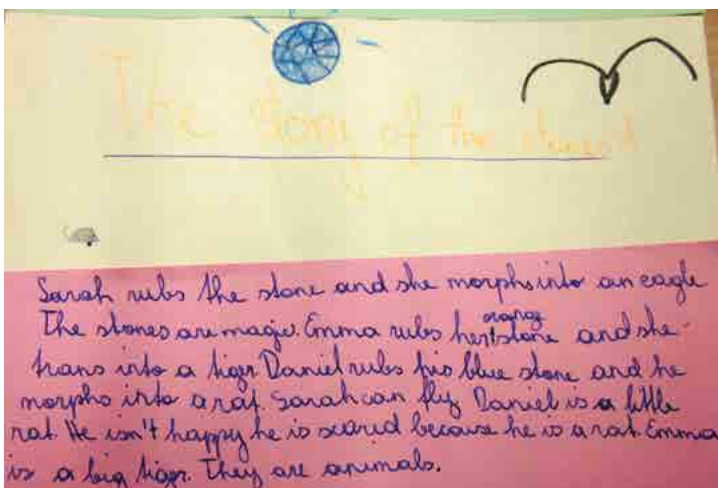 The story of the stones
Sarah rubs the stone and she morphs into an eagle
The stones are magic. Emma rubs her orange stone and she
trans into a tiger Daniel rubs his blue stone and he
morphs into a rat. Sarah can fly. Daniel is a little
rat. He isn't happy he is scared because he is a rat. Emma
is a big tiger. They are animals.